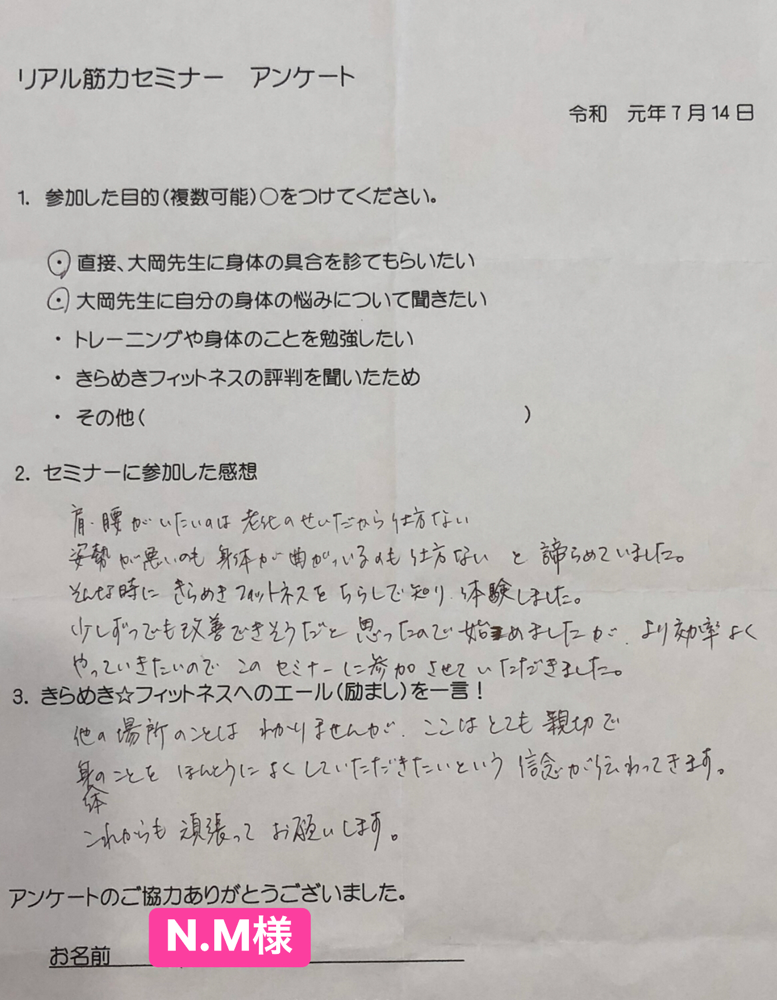 リアル筋力セミナー　アンケート
令和　元年7月14日
1. 参加した目的(複数可能)○をつけてください。
・直接、大岡先生に身体の具合を診てもらいたい
・大岡先生に自分の身体の悩みについて聞きたい
・トレーニングや身体のことを勉強したい
・きらめきフィットネスの評判を聞いたため
・その他(　　　)
2. セミナーに参加した感想
肩・腰がいたいのは老化のせいだから仕方ない
姿勢が悪いのも身体が曲がっているのも仕方ない と諦らめていました。
そんな時にきらめきフィットネスをちらしで知り、体験しました。
少しずつでも改善できそうだと思ったので始めましたが、より効率よく
やっていきたいのでこのセミナーに参加させていただきました。
3. きらめき☆フィットネスへのエール(励まし)を一言！
他の場所のことはわかりませんが、ここはとても親切で
身体のことをほんとうによくしていただきたいという信念が伝わってきます。
これからも頑張ってお願いします。
アンケートのご協力ありがとうございました。
お名前 N.M様